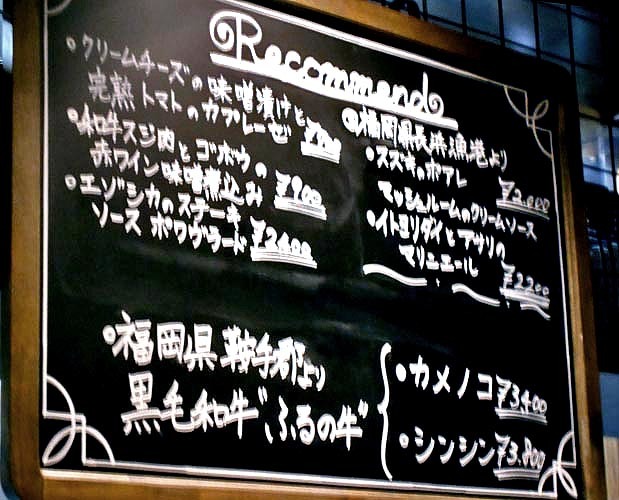 Recommend
・クリームチーズの味噌漬けと
完熟トマトのカプレーゼ
・和牛スジ肉とゴボウの
赤ワイン味噌煮込み ¥900
・エゾシカのステーキ
ソース ポワヴラード ¥2400
◎福岡県長浜漁港より
・スズキのポアレ
マッシュルームのクリームソース ¥2.000
・イトヨリダイとアサリの
マリニエール ¥2200
・福岡県鞍手郡より
黒毛和牛"ふるの牛"
・カメノコ ¥3,400
・シンシン ¥3.800